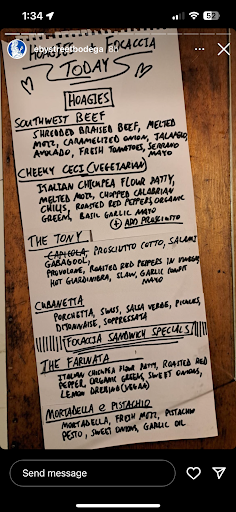 1:34
52
ebystreetbodega
Hoagies Focaccia
TODAY
HOAGIES
SOUTHWEST BEEF
SHREDDED BRAISED BEEF, MELTED
MOTZ, CARAMELIZED ONION, JALAPEÑO
AVOCADO, FRESH TOMATOES, SERRANO
MAYO
CHEEKY CECI (VEGETARIAN)
ITALIAN CHICKPEA FLOUR PATTY,
MELTED MOTZ, CHOPPED CALABRIAN
CHILIS, ROASTED RED PEPPERS ORGANIC
GREENS, BASIL GARLIC MAYO
+ ADD PROSCIUTTO
THE TONY
CAPICOLA, PROSCIUTTO COTTO, SALAMI
GABAGOOL,
PROVOLONE, ROASTED RED PEPPERS IN VINEGAR,
HOT GIARDINIERA, SLAW, GARLIC CONFIT
MAYO
CUBANETTA
PORCHETTA, SWISS, SALSA VERDE, PICKLES,
DIJONNAISE, SOPPRESSATA
FOCACCIA SANDWICH SPECIALS
THE FARINATA
ITALIAN CHICKPEA FLOUR PATTY, ROASTED RED
PEPPER, ORGANIC GREENS, SWEET ONIONS,
LEMON DRESSING (VEGAN)
MORTADELLA e PISTACHIO
MORTADELLA, FRESH MOTZ, PISTACHIO
PESTO, SWEET ONIONS, GARLIC OIL
Send message